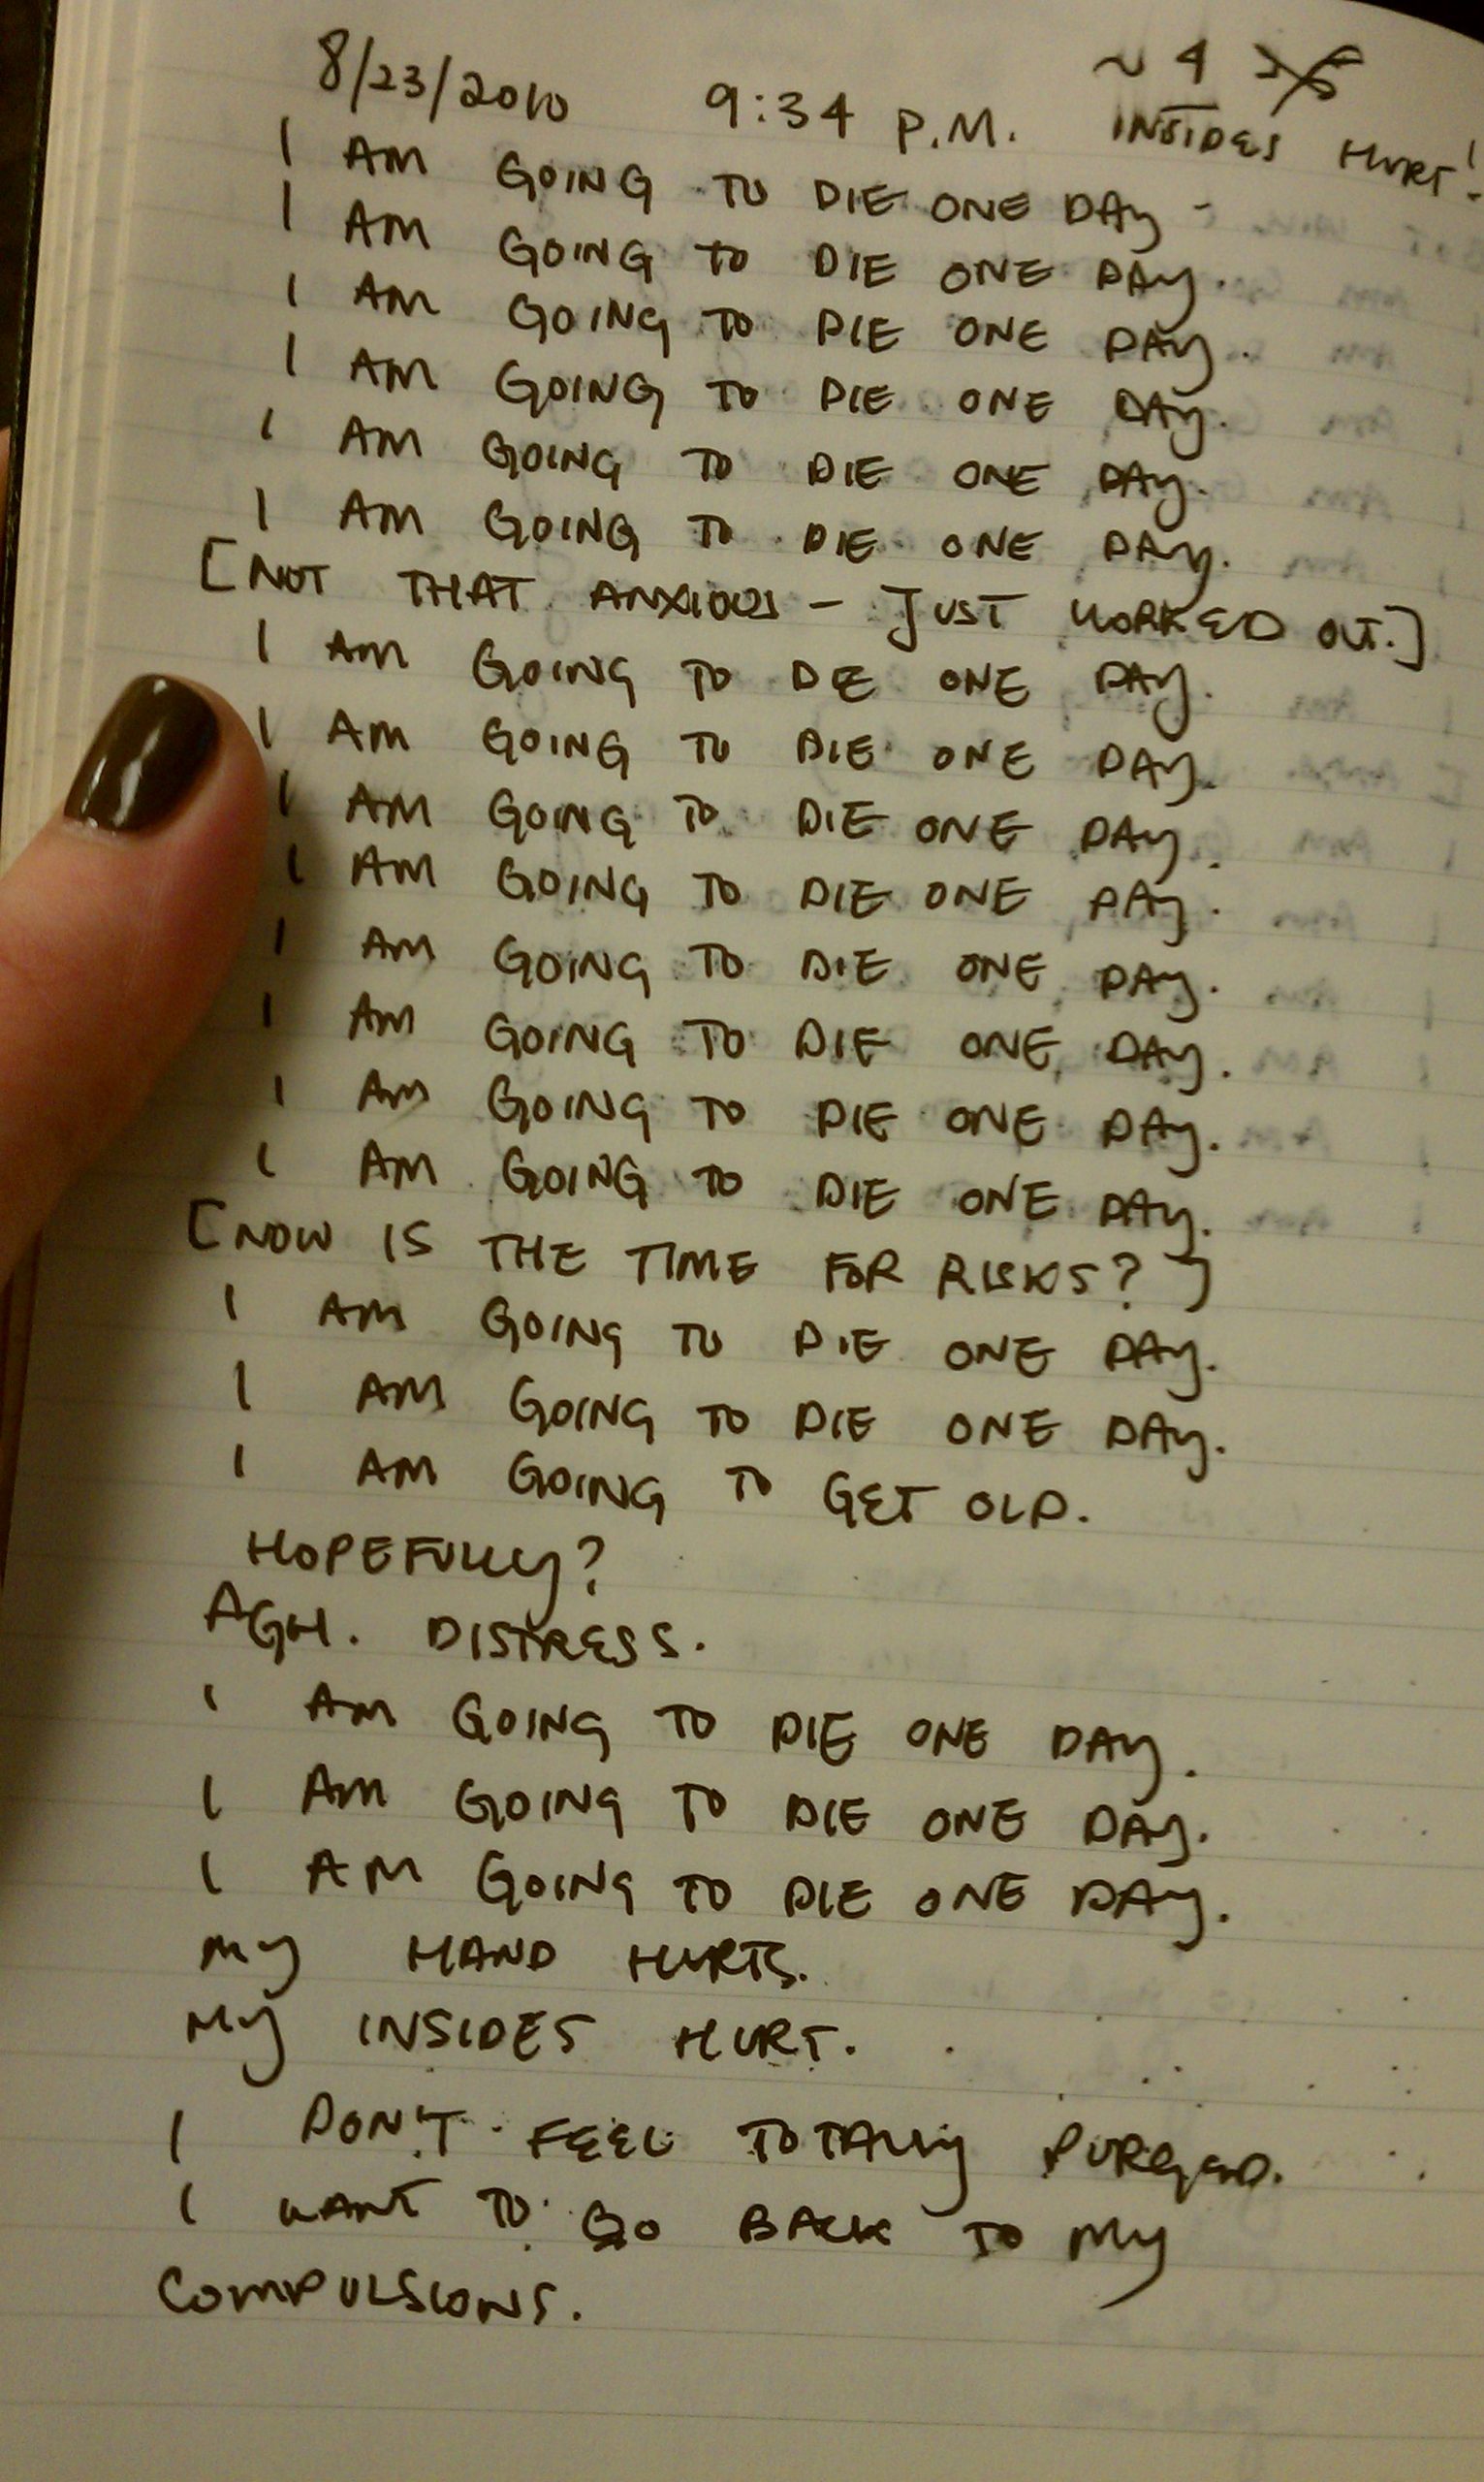 8/23/2010 9:34 P.M. ~ 4
INSIDES HURT!
I AM GOING TO DIE ONE DAY.
I AM GOING TO DIE ONE DAY.
I AM GOING TO DIE ONE DAY.
I AM GOING TO DIE ONE DAY.
I AM GOING TO DIE ONE DAY.
I AM GOING TO DIE ONE DAY.
[NOT THAT ANXIOUS - JUST WORKED OUT.]
I AM GOING TO DIE ONE DAY.
I AM GOING TO DIE ONE DAY.
I AM GOING TO DIE ONE DAY.
I AM GOING TO DIE ONE DAY.
I AM GOING TO DIE ONE DAY.
I AM GOING TO DIE ONE DAY.
I AM GOING TO DIE ONE DAY.
I AM GOING TO DIE ONE DAY.
[NOW IS THE TIME FOR RISKS?]
I AM GOING TO DIE ONE DAY.
I AM GOING TO DIE ONE DAY.
I AM GOING TO GET OLD.
HOPEFULLY?
AGH. DISTRESS.
I AM GOING TO DIE ONE DAY.
I AM GOING TO DIE ONE DAY.
I AM GOING TO DIE ONE DAY.
MY HAND HURTS.
MY INSIDES HURT.
I DON'T FEEL TOTALLY PURGED.
I WANT TO GO BACK TO MY
COMPULSIONS.